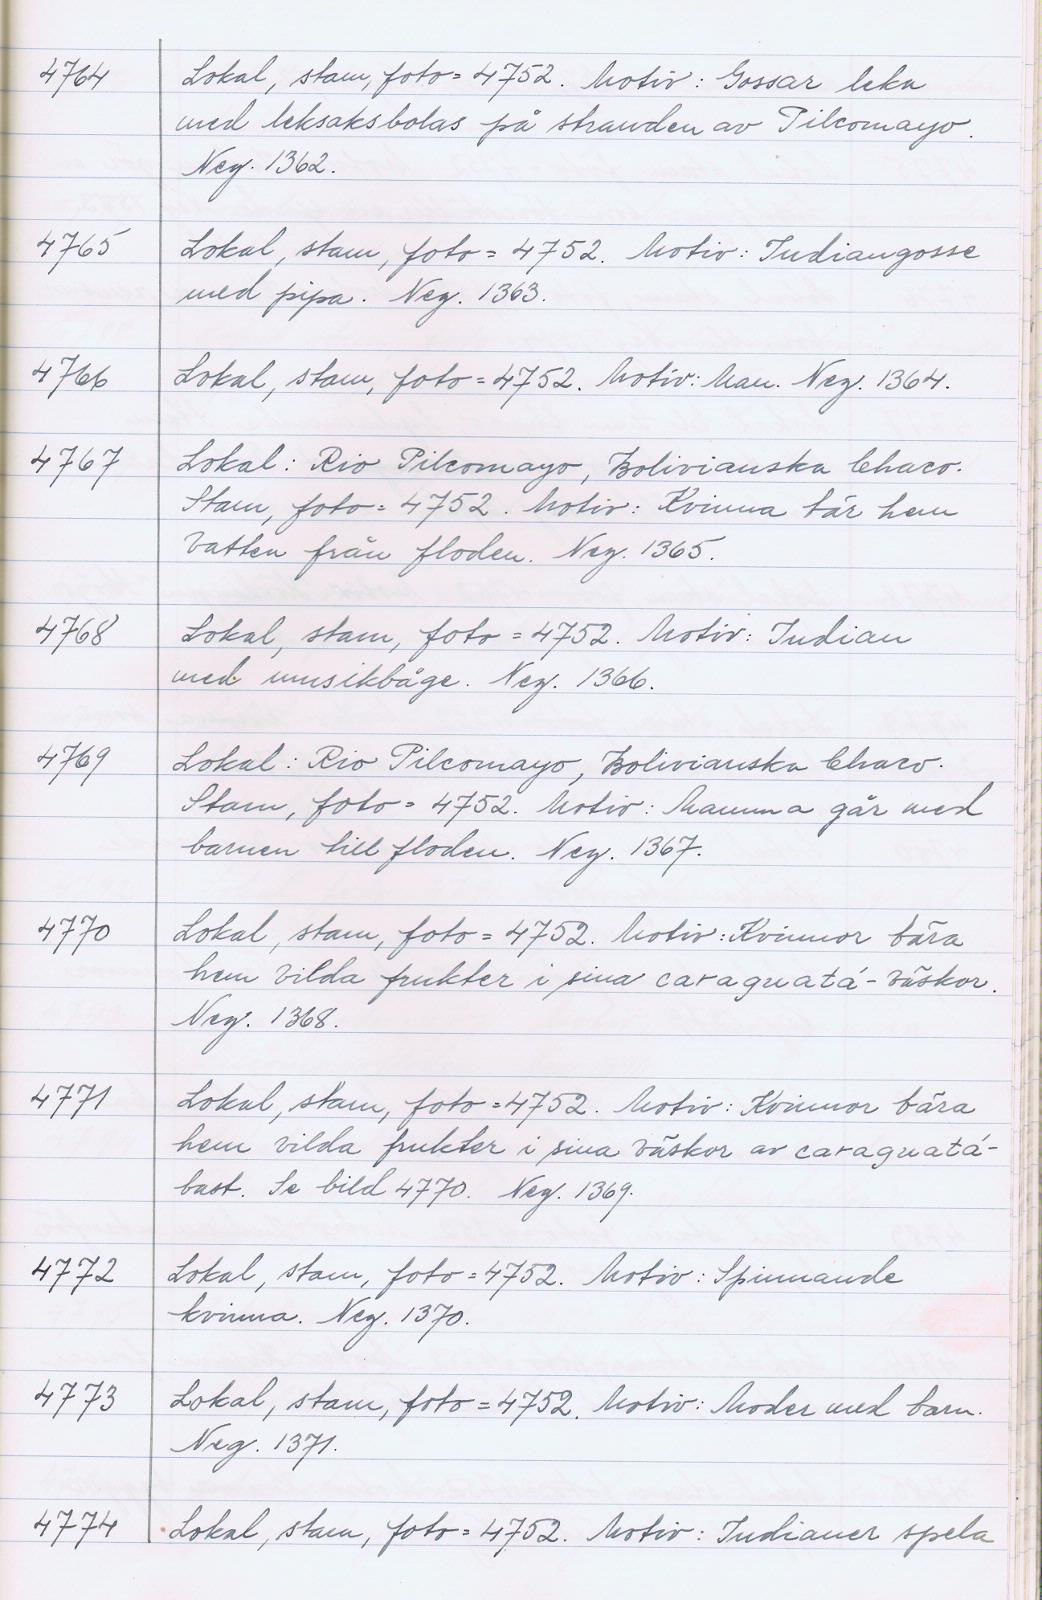 4764 Lokal, stam, foto = 4752. Motiv: Gossar leka
med leksaksbolas på stranden av Pilcomayo.
Neg. 1362.
4765 Lokal, stam, foto = 4752. Motiv: Indiangosse
med pipa. Neg. 1363.
4766 Lokal, stam, foto = 4752. Motiv: Man. Neg. 1364.
4767 Lokal: Rio Pilcomayo, Bolivianska Chaco.
Stam, foto = 4752. Motiv: Kvinna bär hem
vatten från floden. Neg. 1365.
4768 Lokal, stam, foto = 4752. Motiv: Indian
med musikbåge. Neg. 1366.
4769 Lokal: Rio Pilcomayo, Bolivianska Chaco.
Stam, foto = 4752. Motiv: Mamma går med
barnen till floden. Neg. 1367.
4770 Lokal, stam, foto = 4752. Motiv: Kvinnor bära
hem vilda frukter i sina caraguatá-väskor.
Neg. 1368.
4771 Lokal, stam, foto = 4752. Motiv: Kvinnor bära
hem vilda frukter i sina väskor av caraguatá-
bast. Se bild 4770. Neg. 1369.
4772 Lokal, stam, foto = 4752. Motiv: Spinnande
kvinna. Neg. 1370.
4773 Lokal, stam, foto = 4752. Motiv: Moder med barn.
Neg. 1371.
4774 Lokal, stam, foto = 4752. Motiv: Indianer spela